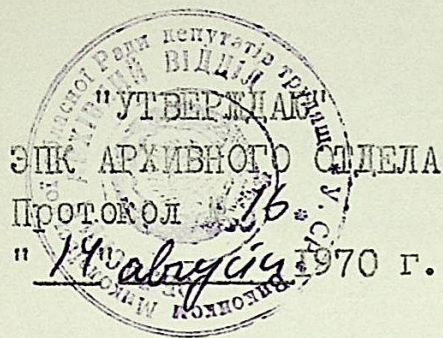 "УТВЕРЖДАЮ"
ЭПК АРХИВНОГО ОТДЕЛА
Протокол № 16
" 14 " августа 1970 г.
Ради депутатів трудящ
АРХІВНИЙ ВІДДІЛ
Виконком Микол